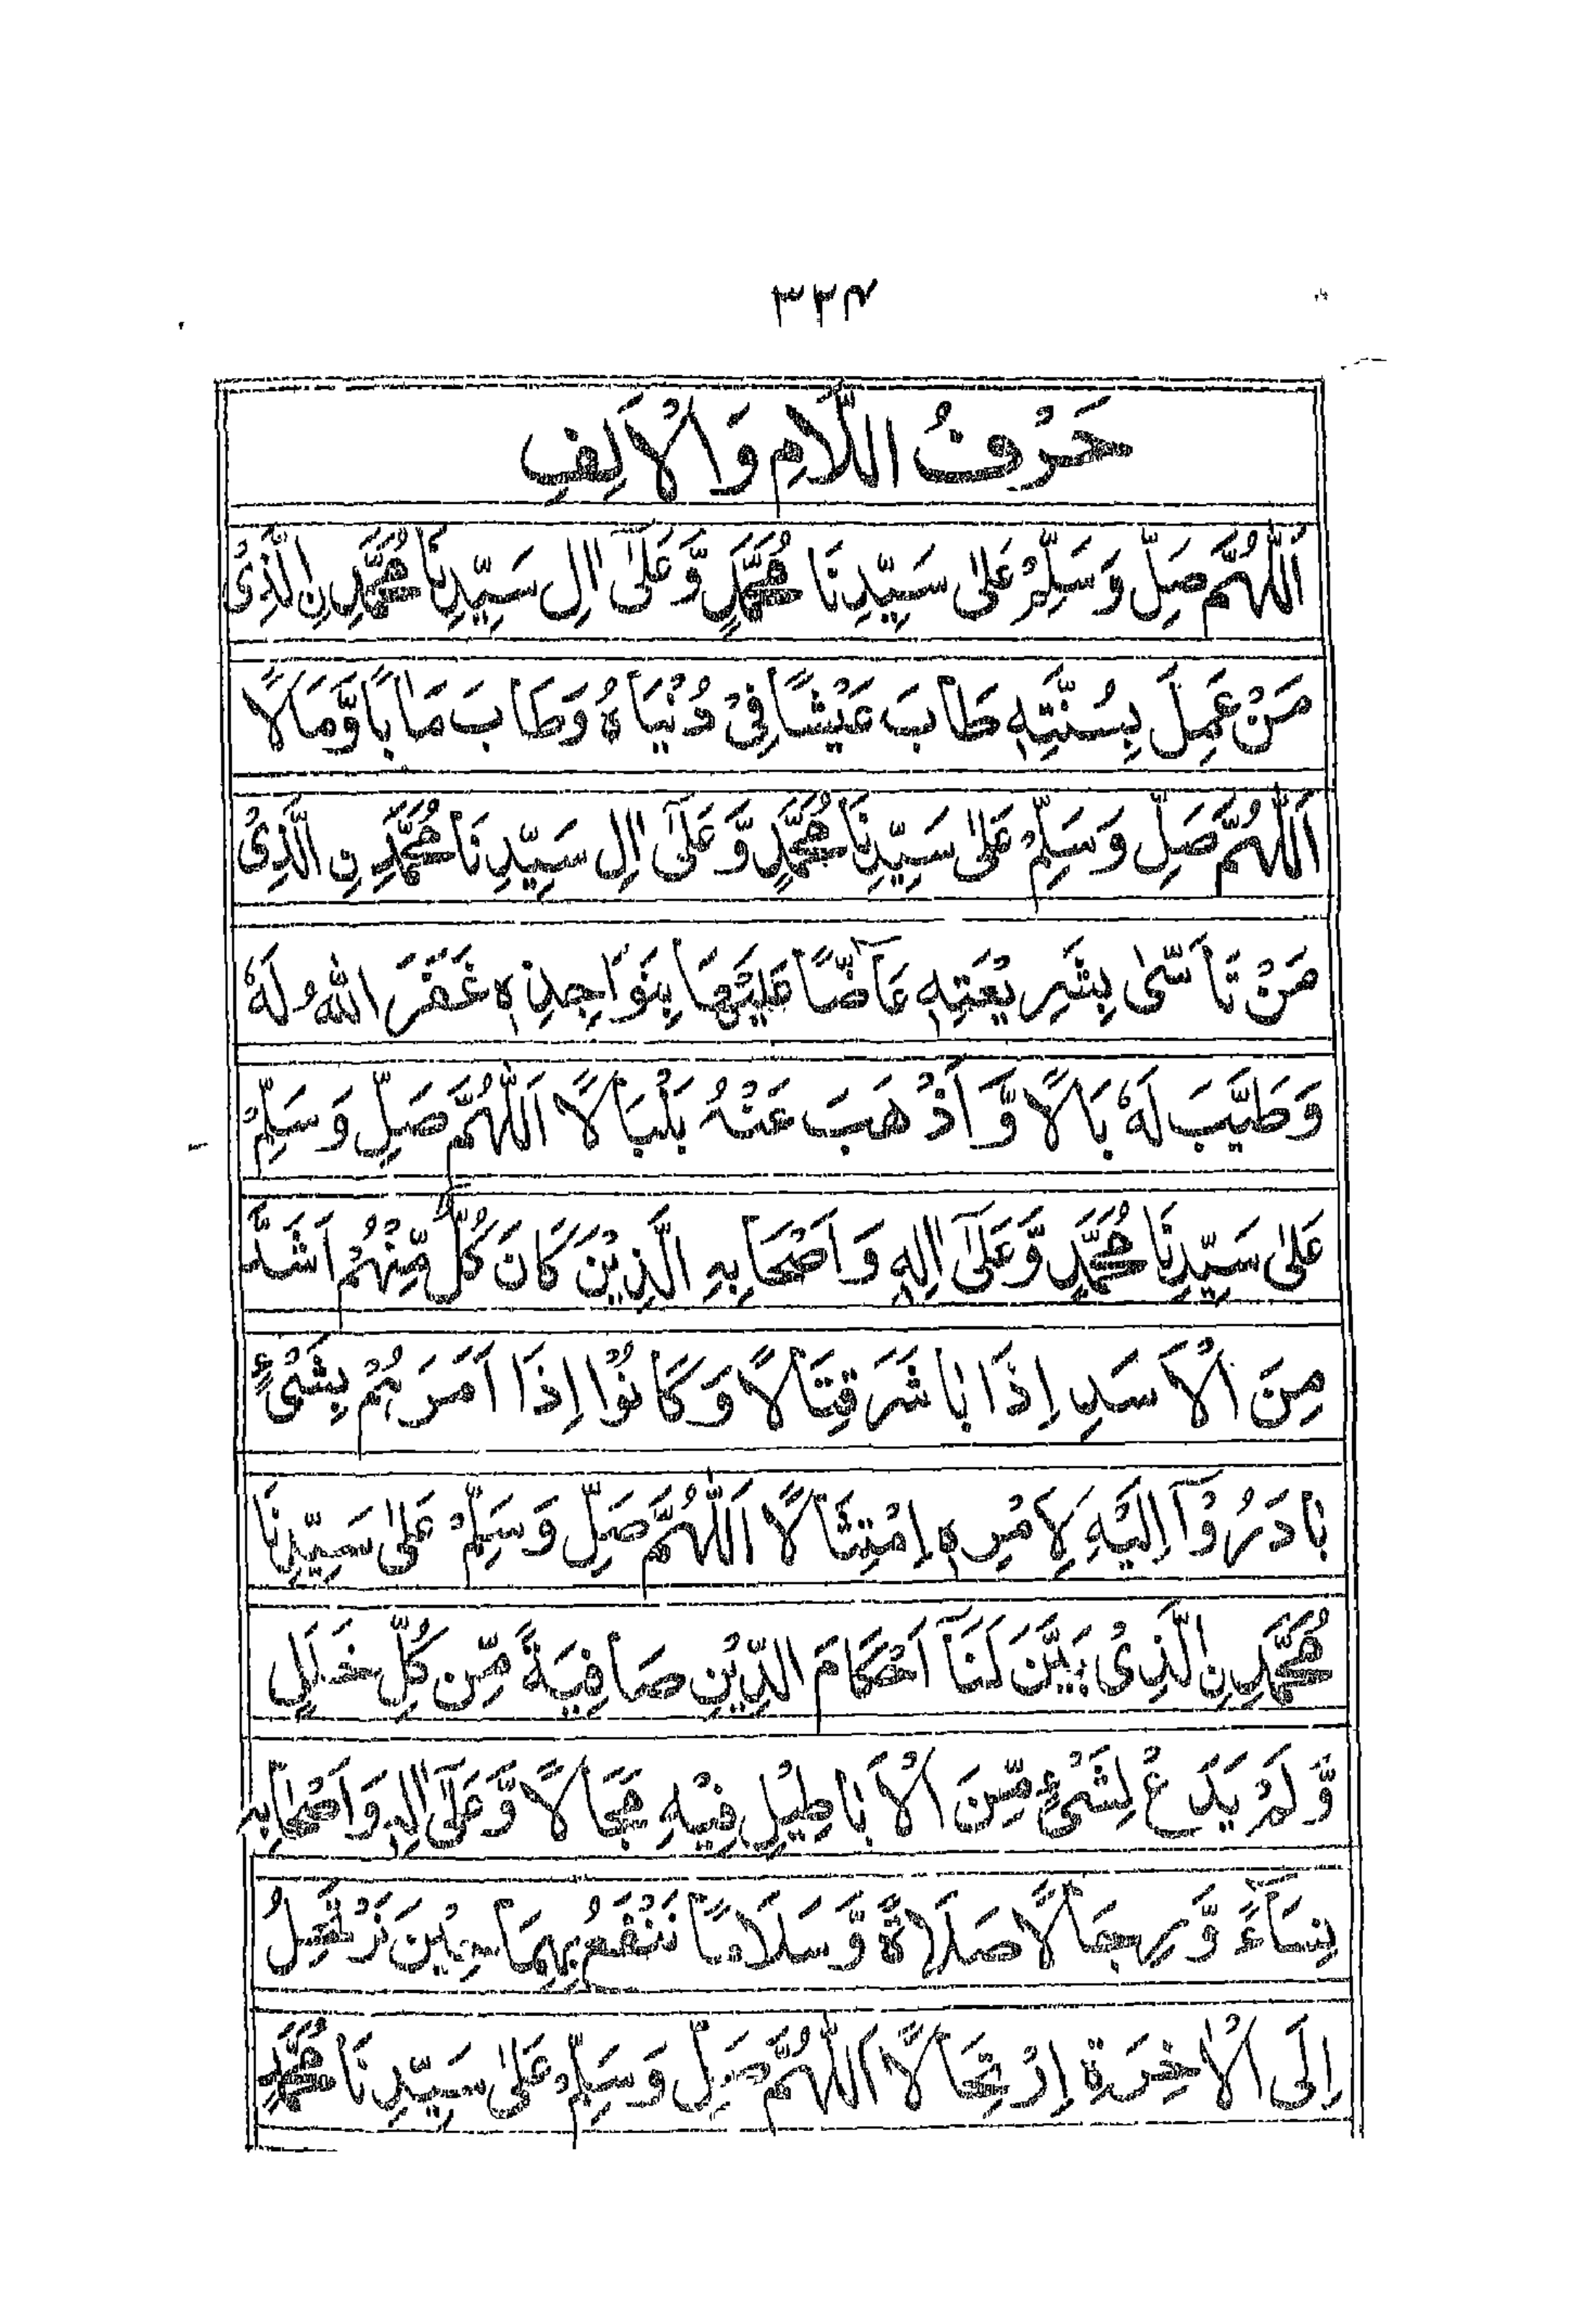 ٣٢٧
حَرْفُ اللَّامِ وَالْاَلِفِ
اَللّٰهُمَّ صَلِّ وَسَلِّمْ عَلٰى سَيِّدِنَا مُحَمَّدٍ وَّعَلٰٓى اٰلِ سَيِّدِنَا مُحَمَّدِ نِ الَّذِىْ
مَنْ عَمِلَ بِسُنَّتِهٖ طَابَ عَيْشًا فِىْ دُنْيَاهُ وَطَابَ مَاٰبًا وَّمَاٰلًا
اَللّٰهُمَّ صَلِّ وَسَلِّمْ عَلٰى سَيِّدِنَا مُحَمَّدٍ وَّعَلٰٓى اٰلِ سَيِّدِنَا مُحَمَّدِ نِ الَّذِىْ
مَنْ تَاَسّٰى بِشَرِيْعَتِهٖ عَآضًّا عَلَيْهَا بِنَوَاجِذِهٖ غَفَرَ اللّٰهُ لَهٗ
وَطَيَّبَ لَهٗ بَالًا وَّاَذْهَبَ عَنْهُ بَلْبَالًا اَللّٰهُمَّ صَلِّ وَسَلِّمْ
عَلٰى سَيِّدِنَا مُحَمَّدٍ وَّعَلٰٓى اٰلِهٖ وَاَصْحَابِهِ الَّذِيْنَ كَانَ كُلٌّ مِّنْهُمْ اَشَدَّ
مِنَ الْاَسَدِ اِذَا بَاشَرَ قِتَالًا وَكَانُوْا اِذَا اَمَرَهُمْ بِشَىْءٍ
بَادَرُوْٓا اِلَيْهِ لِاَمْرِهٖ اِمْتِثَالًا اَللّٰهُمَّ صَلِّ وَسَلِّمْ عَلٰى سَيِّدِنَا
مُحَمَّدِ نِ الَّذِىْ بَيَّنَ لَنَآ اَحْكَامَ الدِّيْنِ صَافِيَةً مِّنْ كُلِّ خَلَلٍ
وَّلَمْ يَدَعْ لِشَىْءٍ مِّنَ الْاَبَاطِيْلِ فِيْهِ مَجَالًا وَّعَلٰٓى اٰلِهٖ وَاَصْحَابِهٖ
نِسَآءً وَّرِجَالًا صَلَاةً وَّسَلَامًا نَنْتَفِعُ بِهِمَا حِيْنَ نَرْتَحِلُ
اِلَى الْاٰخِرَةِ اِرْتِحَالًا اَللّٰهُمَّ صَلِّ وَسَلِّمْ عَلٰى سَيِّدِنَا مُحَمَّدٍ